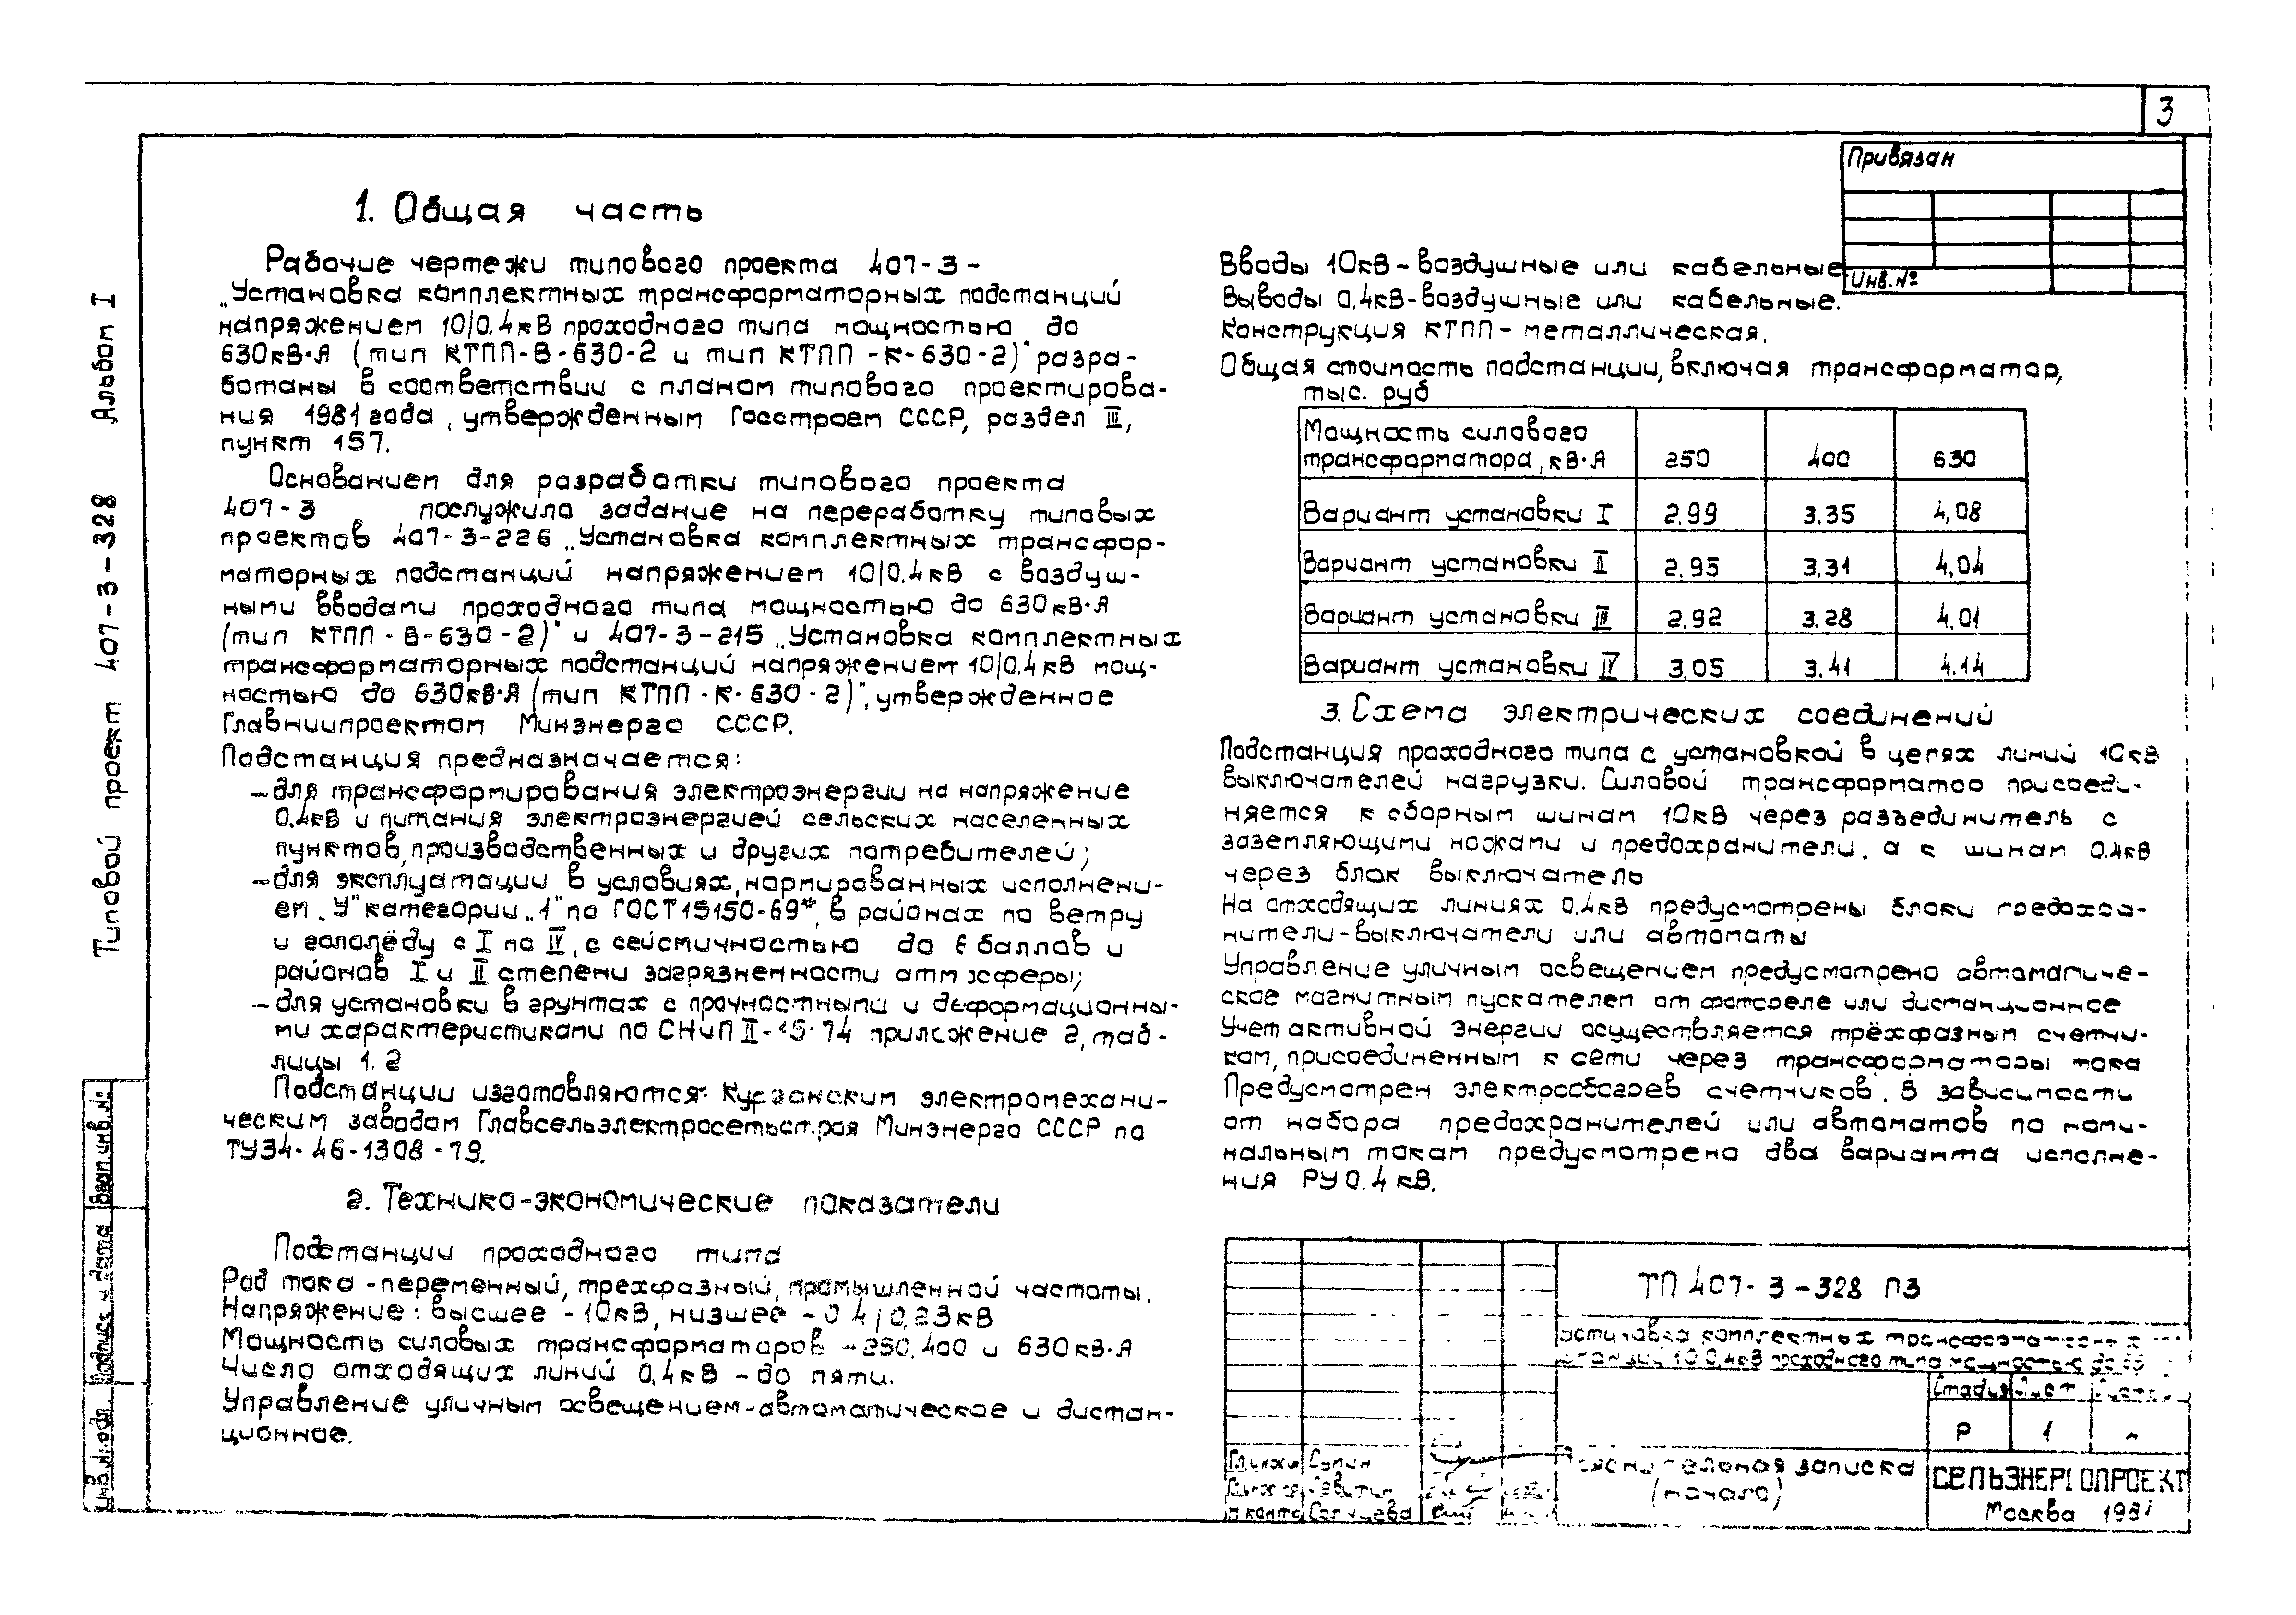 3
Привязан
Инв.№
Типовой проект 407-3-328 Альбом I
1. Общая часть
Рабочие чертежи типового проекта 407-3-
„Установка комплектных трансформаторных подстанций
напряжением 10/0.4кВ проходного типа мощностью до
630кВ·А (тип КТПП-В-630-2 и тип КТПП-К-630-2)" разра-
ботаны в соответствии с планом типового проектирова-
ния 1981 года, утвержденным Госстроем СССР, раздел III,
пункт 157.
Основанием для разработки типового проекта
407-3 послужило задание на переработку типовых
проектов 407-3-226 „Установка комплектных трансфор-
маторных подстанций напряжением 10/0.4кВ с воздуш-
ными вводами проходного типа мощностью до 630кВ·А
(тип КТПП-В-630-2)" и 407-3-215 „Установка комплектных
трансформаторных подстанций напряжением 10/0.4кВ мощ-
ностью до 630кВ·А (тип КТПП-К-630-2)", утвержденное
Главниипроектом Минэнерго СССР.
Подстанция предназначается:
–для трансформирования электроэнергии на напряжение
0,4кВ и питания электроэнергией сельских населенных
пунктов, производственных и других потребителей;
–для эксплуатации в условиях, нормированных исполнени-
ем „У" категории „1" по ГОСТ 15150-69*, в районах по ветру
и гололёду с I по IV, с сейсмичностью до 6 баллов и
районов I и II степени загрязненности атмосферы;
–для установки в грунтах с прочностными и деформационны-
ми характеристиками по СНиП II-15-74 приложение 2, таб-
лицы 1.2
Подстанции изготовляются Курганским электромехани-
ческим заводом Главсельэлектросетьстроя Минэнерго СССР по
ТУ34-46-1308-79.
2. Технико-экономические показатели
Подстанции проходного типа
Род тока -переменный, трехфазный, промышленной частоты.
Напряжение: высшее - 10кВ, низшее - 0.4/0,23кВ
Мощность силовых трансформаторов - 250,400 и 630кВ·А
Число отходящих линий 0,4кВ - до пяти.
Управление уличным освещением-автоматическое и дистан-
ционное.
Вводы 10кВ-воздушные или кабельные
Выводы 0,4кВ-воздушные или кабельные.
Конструкция КТПП - металлическая.
Общая стоимость подстанции, включая трансформатор,
тыс. руб
Мощность силового
трансформатора, кВ·А 250 400 630
Вариант установки I 2.99 3.35 4,08
Вариант установки II 2.95 3.31 4,04
Вариант установки III 2.92 3.28 4.01
Вариант установки IV 3.05 3.41 4.14
3. Схема электрических соединений
Подстанция проходного типа с установкой в цепях линий 10кВ
выключателей нагрузки. Силовой трансформатор присоеди-
няется к сборным шинам 10кВ через разъединитель с
заземляющими ножами и предохранители, а к шинам 0.4кВ
через блок выключатель
На отходящих линиях 0,4кВ предусмотрены блоки предохра-
нители-выключатели или автоматы
Управление уличным освещением предусмотрено автоматиче-
ское магнитным пускателем от фотореле или дистанционное
Учет активной энергии осуществляется трёхфазным счетчи-
ком, присоединенным к сети через трансформаторы тока
Предусмотрен электрообогрев счетчиков. В зависимости
от набора предохранителей или автоматов по номи-
нальным токам предусмотрено два варианта исполне-
ния РУ 0.4 кВ.
Взам.инв.№
Подпись и дата
Инв.№подл.
ТП 407-3-328 ПЗ
Установка комплектных трансформаторных
подстанций 10/0,4кВ проходного типа мощностью до
Стадия Лист
Р 1
Пояснительная записка
(начало)
СЕЛЬЭНЕРГОПРОЕКТ
Москва 1981
Н контр